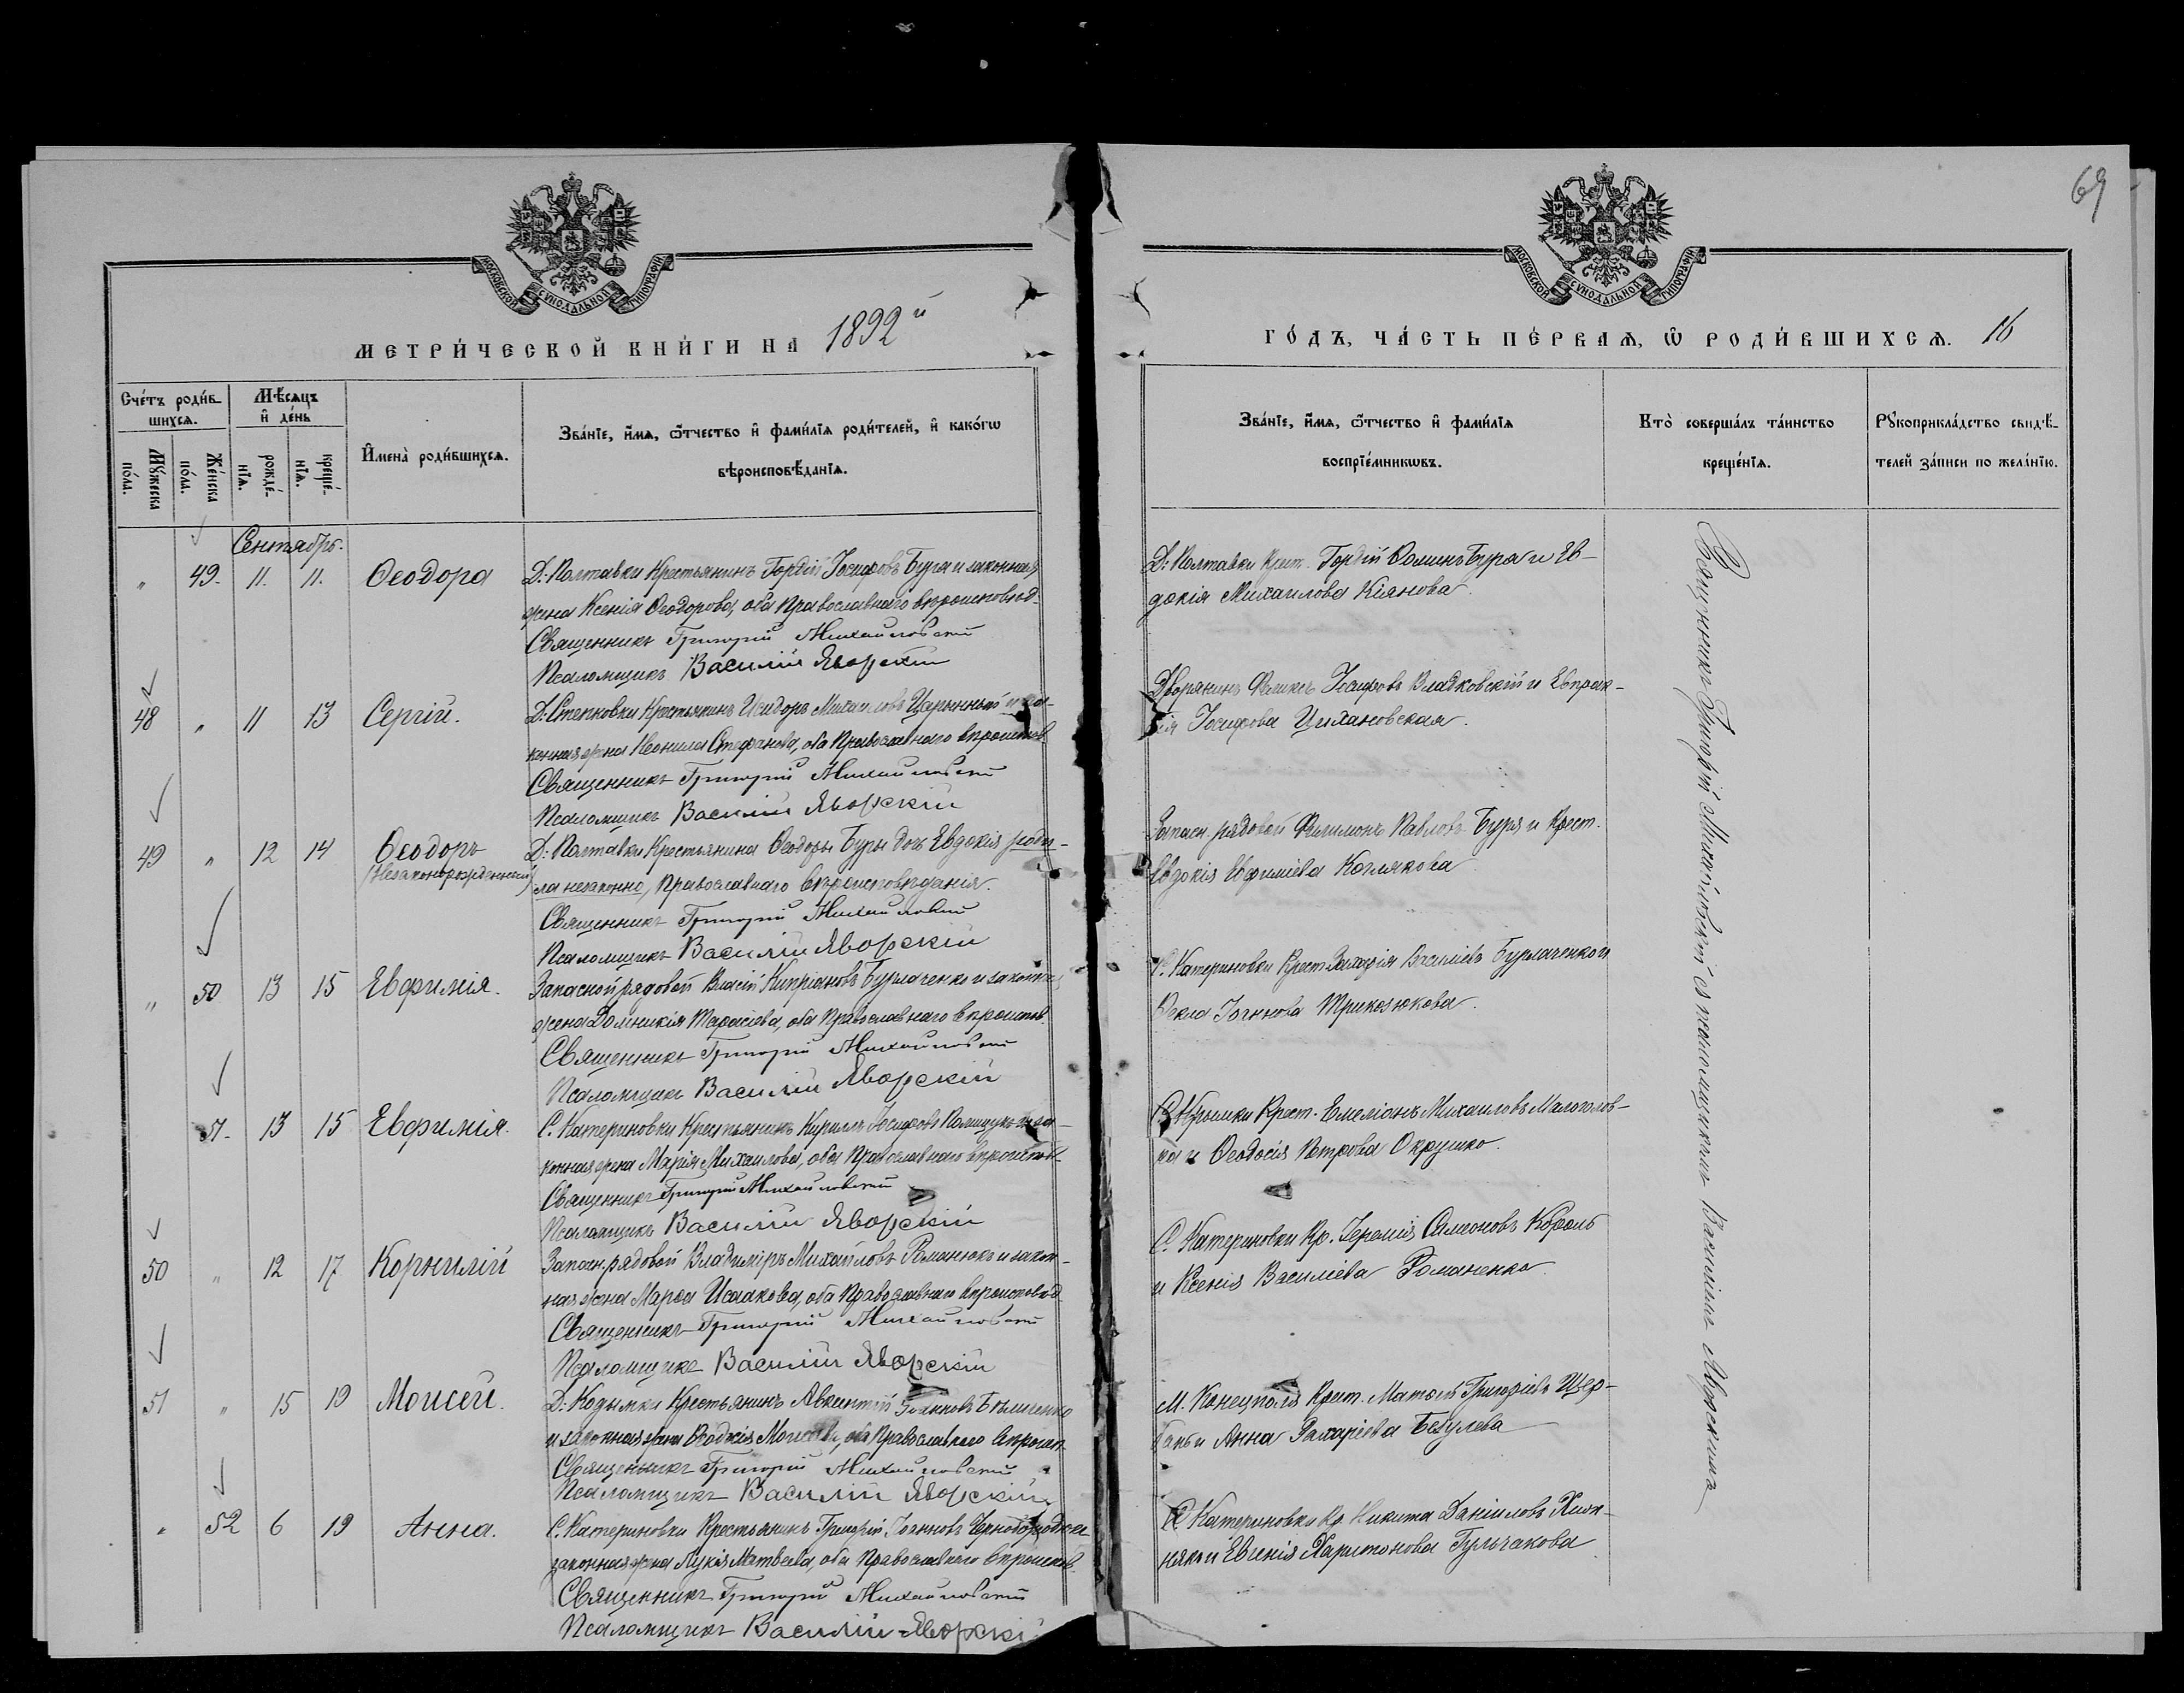 69
МОСКОВСКОЙ СѴНОДАЛЬНОЙ ТИПОГРАФІИ
МЕТРИ́ЧЕСКОЙ КНИ́ГИ НА 1892й
МОСКОВСКОЙ СѴНОДАЛЬНОЙ ТИПОГРАФІИ
ГО́ДЪ, ЧА́СТЬ ПЕ́РВАѦ, Ѿ РОДИ́ВШИХСѦ. 16
Сче́тъ роди́вшихсѧ.
Мꙋ́жеска по́ла.
Же́нска по́ла.
Мѣ́сѧцъ и҆ де́нь
рожде́нїѧ.
креще́нїѧ.
И҆мена̀ роди́вшихсѧ.
Зва́нїе, и҆́мѧ, ѻ҆́тчество и҆ фами́лїѧ роди́телей, и҆ како́гѡ
вѣроисповѣ́данїѧ.
Зва́нїе, и҆́мѧ, ѻ҆́тчество и҆ фами́лїѧ
воспрїе́мникѡвъ.
Кто̀ соверша́лъ та́инство
креще́нїѧ.
Рꙋкоприкла́дство свидѣ́-
телей за́писи по жела́нїю.
Сентябрь.
" 49. 11. 11. Ѳеодора
Д. Полтавки Крестьянинъ Гордій Іосифовъ Бура и законная
жена Ксенія Ѳеодорова, оба Православнаго вѣроисповѣд.
Священникъ Григорій Михайловскій
Псаломщикъ Василій Яворскій
Д. Полтавки Крест. Гордій Ѳоминъ Бура и Ев-
докія Михаилова Кіянова.
48 " 11 13 Сергій.
Д. Степковки Крестьянинъ Исидоръ Михаиловъ Царынный и за-
конная жена Неонила Стефанова, оба Православнаго вѣроисповѣд.
Священникъ Григорій Михайловскій
Псаломщикъ Василій Яворскій
Дворянинъ Феликсъ Іосифовъ Владковскій и Евпрак-
сія Іосифова Цихановская.
49 " 12 14 Ѳеодоръ
(Незаконорожденный)
Д. Полтавки Крестьянина Ѳеодоры Буры дочь Евдокія роди-
ла незаконно, Православнаго вѣроисповѣданія.
Священникъ Григорій Михайловскій
Псаломщикъ Василій Яворскій
Запасн. рядовой Филимонъ Павловъ Буря и Крест.
Евдокія Евфиміева Котлякова
" 50 13 15 Евфимія.
Запасной рядовой Власій Кипріановъ Бурлаченко и законная
жена Домникія Тарасіева, оба Православнаго вѣроиспов.
Священникъ Григорій Михайловскій
Псаломщикъ Василій Яворскій
С. Катериновки Крест. Захарія Василіевъ Бурлаченко и
Ѳекла Іоаннова Трикозюкова.
51. 13 15 Евфимія.
С. Катериновки Крестьянинъ Кириллъ Іосифовъ Полищукъ и за-
конная жена Марія Михаилова, оба Православнаго вѣроисповѣд.
Священникъ Григорій Михайловскій
Псаломщикъ Василій Яворскій
Крымки Крест. Емеліанъ Михаиловъ Малоголов-
ка и Ѳеодосія Петрова Окрушко.
50 " 12 17 Корнилій
Запасн. рядовой Владиміръ Михайловъ Романюкъ и закон-
ная жена Марѳа Исаакова, оба Православнаго вѣроисповѣд.
Священникъ Григорій Михайловскій
Псаломщикъ Василій Яворскій
С. Катериновки Кр. Іеремія Симеоновъ Король
и Ксенія Василіева Романенко.
51 " 15 19 Моисей.
Д. Кодымки Крестьянинъ Авксентій Іоанновъ
и законная жена Ѳеодосія оба Православнаго вѣроисп.
Священникъ Григорій Михайловскій
Псаломщикъ Василій Яворскій
М. Конецполя Крест. Матѳей Григоріевъ Щер-
бань и Анна Захаріева
" 52 6 19 Анна.
С. Катериновки Крестьянинъ Григорій Іоанновъ
законная жена Лукія Матвеева, оба Православнаго вѣроисповѣд.
Священникъ Григорій Михайловскій
Псаломщикъ Василій Яворскі
С. Катериновки Кр. Никита Даніиловъ
и Евгенія Харитонова Гульчакова
Священникъ Григорій Михайловскій съ псаломщикомъ Василіемъ Яворскимъ